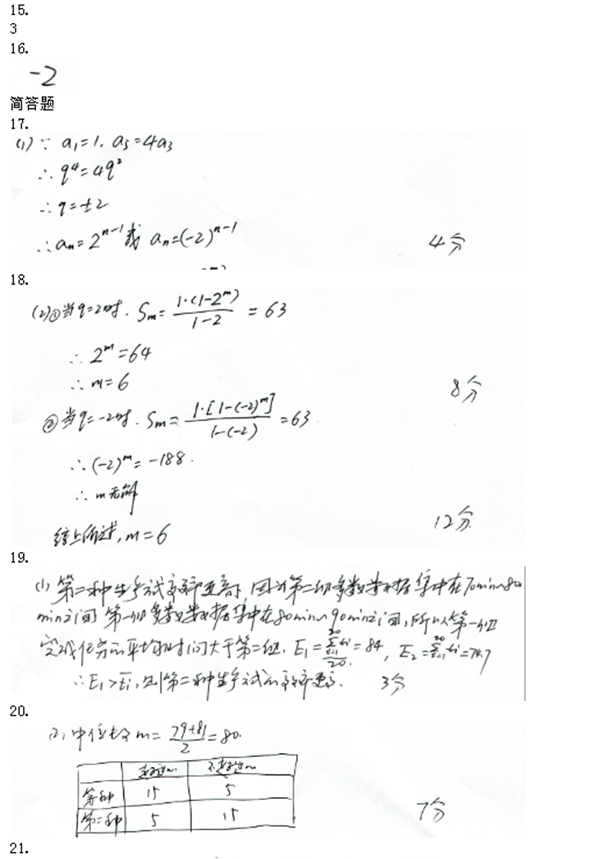 15.
3
16.
-2
简答题
17.
(1) ∵ a₁=1, a₅=4a₃
∴ q⁴=4q²
∴ q=±2
∴ aₙ=2ⁿ⁻¹ 或 aₙ=(-2)ⁿ⁻¹ 4分
18.
(2)①当q=2时. Sₘ= 1·(1-2ᵐ)/(1-2) = 63
∴ 2ᵐ=64
∴ m=6 8分
②当q=-2时. Sₘ= 1·[1-(-2)ᵐ]/(1-(-2)) =63
∴ (-2)ᵐ=-188.
∴ m无解
综上所述, m=6 12分
19.
(1) 第二种生产方式效率更高, 因为第二组多数数据集中在70min~80
min之间 第一组多数数据集中在80min~90min之间, 所以第一组
完成任务的平均时间大于第二组. E₁= =84, E₂= =74.7
∴ E₁>E₂, 则第二种生产方式的效率更高. 3分
20.
(2) 中位数 m= (79+81)/2 =80.
超过m 不超过m
第一种 15 5
第二种 5 15 7分
21.